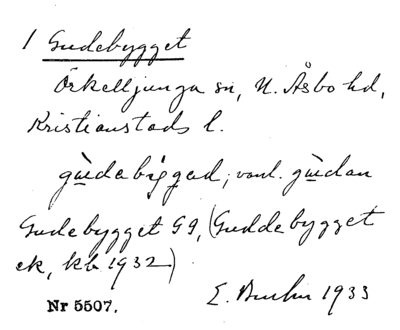 1 Gudebygget
Örkelljunga sn, N. Åsbo hd,
Kristianstads l.
gùdabÿgged, vanl. gùdan
Gudebygget G9, (Guddebygget
ek, kb 1932)
E. 1933
Nr 5507.